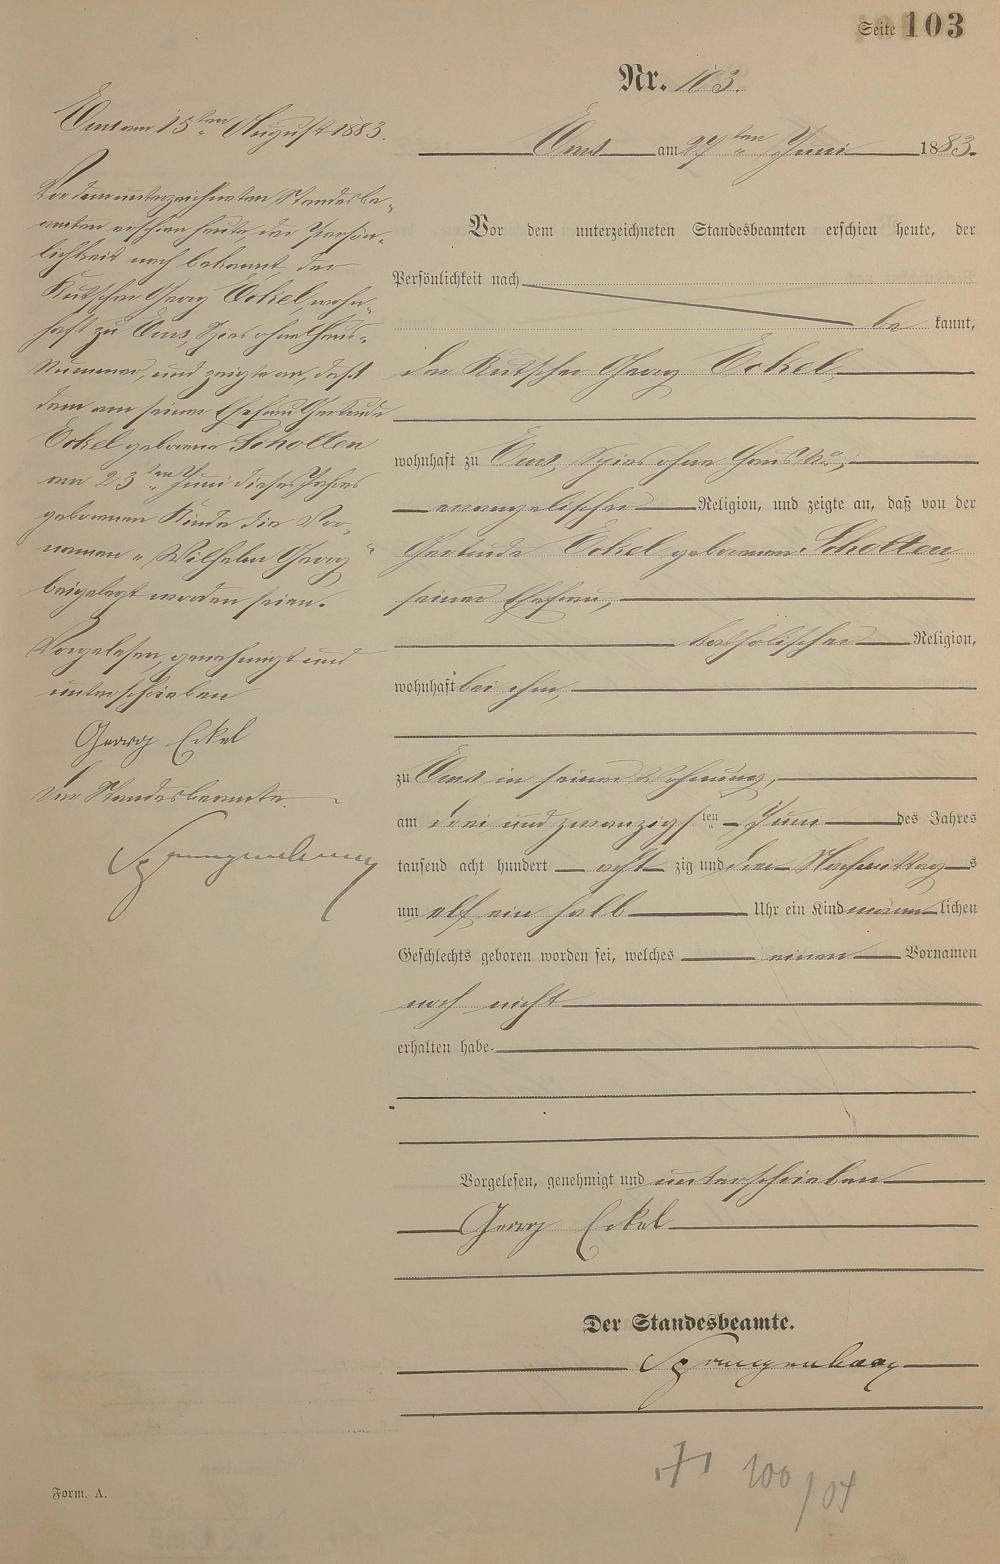 Seite 103
Nr. 103.
Ems am 27ten Juni 1883.
Vor dem unterzeichneten Standesbeamten erschien heute, der
Persönlichkeit nach
be kannt,
der Kutscher Georg Eckel
wohnhaft zu Ems, Spies ohne Haus No.,
evangelischer Religion, und zeigte an, daß von der
Gertrude Eckel geborenen Scholten,
seiner Ehefrau,
katholischer Religion,
wohnhaft bei ihm,
zu Ems in seiner Wohnung,
am drei und zwanzigsten Juni des Jahres
tausend acht hundert acht zig und drei Nachmittags
um elf ein halb Uhr ein Kind männlichen
Geschlechts geboren worden sei, welches einen Vornamen
noch nicht
erhalten habe.
Vorgelesen, genehmigt und unterschrieben
Georg Eckel
Der Standesbeamte.
Ems am 15ten August 1883.
Vor dem unterzeichneten Standesbe-
amten erschien heute, der Persön-
lichkeit nach bekannt, der
Kutscher Georg Eckel, wohn-
haft zu Ems, Spies ohne Haus-
Nummer, und zeigte an, daß
dem von seiner Ehefrau Gertrude
Eckel geborene Scholten
am 23ten Juni dieses Jahres
geborenen Kinde die Vor-
namen „Wilhelm Georg“
beigelegt worden seien.
Vorgelesen, genehmigt und
unterschrieben
Georg Eckel
Der Standesbeamte
Form. A.
100/04